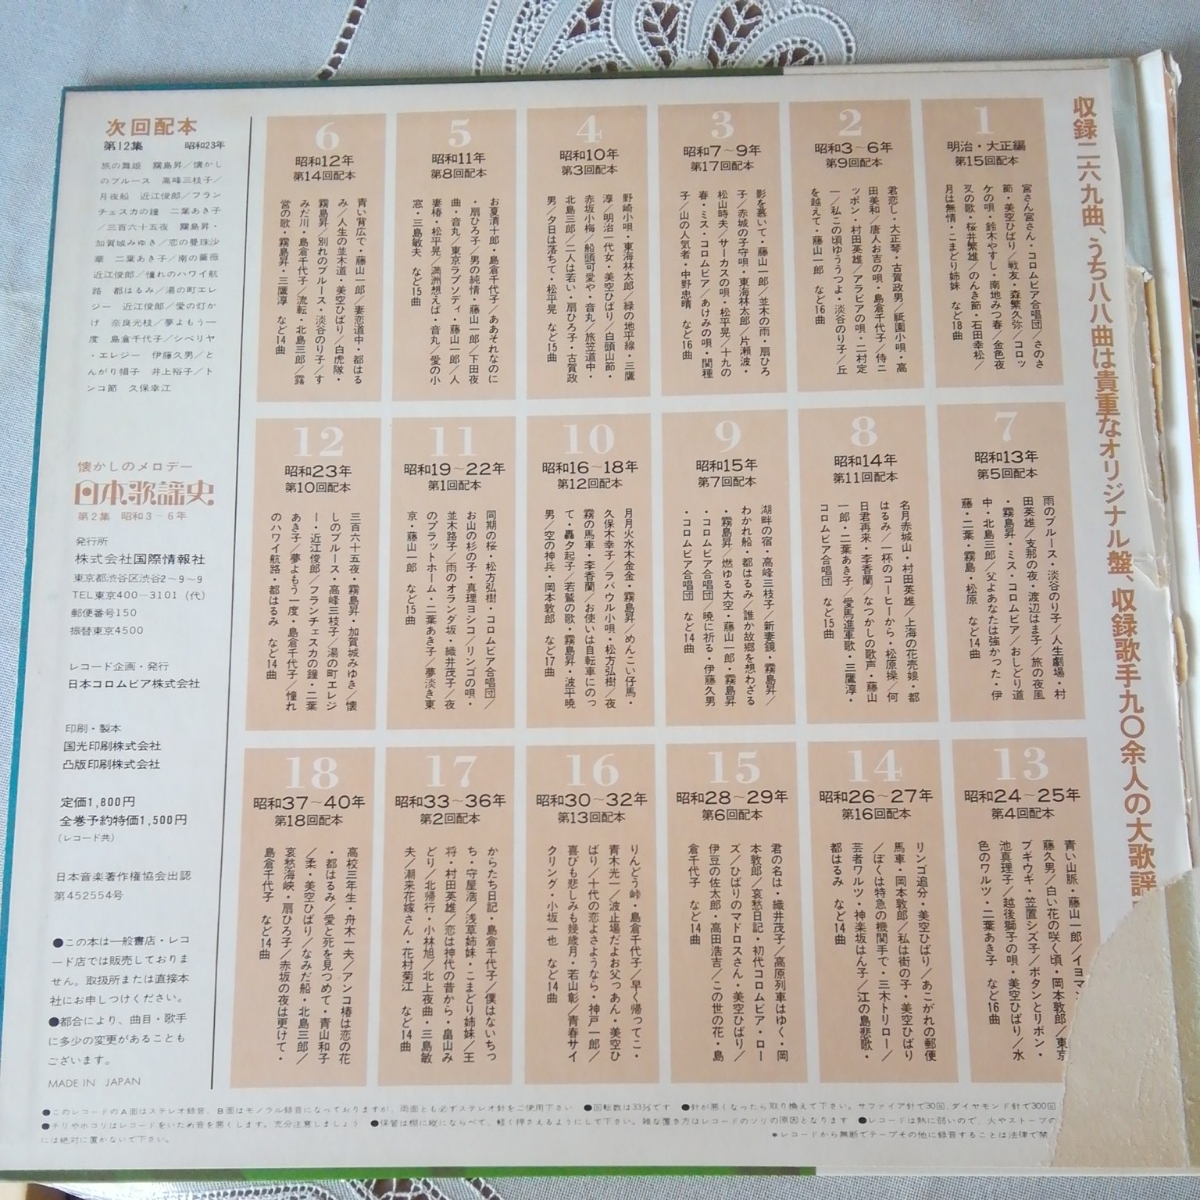 収録二六九曲、うち八八曲は貴重なオリジナル盤、収録歌手九〇余人の大歌謡
1
明治・大正編
第15回配本
宮さん宮さん・コロムビア合唱団／さのさ
節・美空ひばり／戦友・森繁久弥／コロッ
ケの唄・鈴木やすし・南地みつ春／金色夜
叉の歌・桜井繁雄／のんき節・石田幸松／
月は無情・こまどり姉妹　など18曲
2
昭和3～6年
第9回配本
君恋し・大正琴・古賀政男／祇園小唄・高
田美和／唐人お吉の唄・島倉千代子／侍ニ
ッポン・村田英雄／アラビアの唄・二村定
一／私この頃ゆううつよ・淡谷のり子／丘
を越えて・藤山一郎　など16曲
3
昭和7～9年
第17回配本
影を慕いて・藤山一郎／並木の雨・扇ひろ
子／赤城の子守唄・東海林太郎／片瀬波・
松山時夫／サーカスの唄・松平晃／十九の
春・ミス・コロムビア／あけみの唄・関種
子／山の人気者・中野忠晴　など16曲
4
昭和10年
第3回配本
野崎小唄・東海林太郎／緑の地平線・三鷹
淳／明治一代女・美空ひばり／白頭山節・
赤坂小梅／船頭可愛や・音丸／旅笠道中・
北島三郎／二人は若い・扇ひろ子・古賀政
男／夕日は落ちて・松平晃　など15曲
5
昭和11年
第8回配本
お夏清十郎・島倉千代子／ああそれなのに
・扇ひろ子／男の純情・藤山一郎／下田夜
曲・音丸／東京ラプソディ・藤山一郎／人
妻椿・松平晃／満洲想えば・音丸／愛の小
窓・三島敏夫　など15曲
6
昭和12年
第14回配本
青い背広で・藤山一郎／妻恋道中・都はる
み／人生の並木道・美空ひばり／白虎隊・
霧島昇／別れのブルース・淡谷のり子／す
みだ川・島倉千代子／流転・北島三郎／露
営の歌・霧島昇・三鷹淳　など14曲
7
昭和13年
第5回配本
雨のブルース・淡谷のり子／人生劇場・村
田英雄／支那の夜・渡辺はま子／旅の夜風
・霧島昇・ミス・コロムビア／おしどり道
中・北島三郎／父よあなたは強かった・伊
藤・二葉・霧島・松原　など14曲
8
昭和14年
第11回配本
名月赤城山・村田英雄／上海の花売娘・都
はるみ／一杯のコーヒーから・松原操／何
日君再来・李香蘭／なつかしの歌声・藤山
一郎・二葉あき子／愛馬進軍歌・三鷹淳・
コロムビア合唱団　など15曲
9
昭和15年
第7回配本
湖畔の宿・高峰三枝子／新妻鏡・霧島昇／
わかれ船・都はるみ／誰か故郷を想わざる
・霧島昇／燃ゆる大空・藤山一郎・霧島昇
・コロムビア合唱団／暁に祈る・伊藤久男
・コロムビア合唱団　など14曲
10
昭和16～18年
第12回配本
月月火水木金金・霧島昇／めんこい仔馬・
久保木幸子／ラバウル小唄・松方弘樹／夜
霧の馬車・李香蘭／お使いは自転車にのっ
て・轟夕起子／若鷲の歌・霧島昇・波平暁
男／空の神兵・岡本敦郎　など17曲
11
昭和19～22年
第1回配本
同期の桜・松方弘樹・コロムビア合唱団／
お山の杉の子・真理ヨシコ／リンゴの唄・
並木路子／雨のオランダ坂・織井茂子／夜
のプラットホーム・二葉あき子／夢淡き東
京・藤山一郎　など15曲
12
昭和23年
第10回配本
三百六十五夜・霧島昇・加賀城みゆき／懐
しのブルース・高峰三枝子／湯の町エレジ
ー・近江俊郎／フランチェスカの鐘・二葉
あき子／夢よもう一度・島倉千代子／憧れ
のハワイ航路・都はるみ　など14曲
13
昭和24～25年
第4回配本
青い山脈・藤山一郎／イヨマン
藤久男／白い花の咲く頃・岡本敦郎／東京
ブギウギ・笠置シズ子／ボタンとリボン・
池真理子／越後獅子の唄・美空ひばり／水
色のワルツ・二葉あき子　など16曲
14
昭和26～27年
第16回配本
リンゴ追分・美空ひばり／あこがれの郵便
馬車・岡本敦郎／私は街の子・美空ひばり
／ぼくは特急の機関手で・三木トリロー／
芸者ワルツ・神楽坂はん子／江の島悲歌・
都はるみ　など14曲
15
昭和28～29年
第6回配本
君の名は・織井茂子／高原列車はゆく・岡
本敦郎／哀愁日記・初代コロムビア・ロー
ズ／ひばりのマドロスさん・美空ひばり／
伊豆の佐太郎・高田浩吉／この世の花・島
倉千代子　など14曲
16
昭和30～32年
第13回配本
りんどう峠・島倉千代子／早く帰ってこ・
青木光一／波止場だよお父つあん・美空ひ
ばり／十代の恋よさようなら・神戸一郎／
喜びも悲しみも幾歳月・若山彰／青春サイ
クリング・小坂一也　など14曲
17
昭和33～36年
第2回配本
からたち日記・島倉千代子／僕はないちっ
ち・守屋浩／浅草姉妹・こまどり姉妹／王
将・村田英雄／恋は神代の昔から・畠山み
どり／北帰行・小林旭／北上夜曲・三島敏
夫／潮来花嫁さん・花村菊江　など14曲
18
昭和37～40年
第18回配本
高校三年生・舟木一夫／アンコ椿は恋の花
・都はるみ／愛と死を見つめて・青山和子
／柔・美空ひばり／なみだ船・北島三郎／
哀愁海峡・扇ひろ子／赤坂の夜は更けて・
島倉千代子　など14曲
次回配本
第12集　昭和23年
旅の舞姫　霧島昇／懐かし
のブルース　高峰三枝子／
月夜船　近江俊郎／フラン
チェスカの鐘　二葉あき子
／三百六十五夜　霧島昇・
加賀城みゆき／恋の曼珠沙
華　二葉あき子／南の薔薇
近江俊郎／憧れのハワイ航
路　都はるみ／湯の町エレ
ジー　近江俊郎／愛の灯か
げ　奈良光枝／夢よもう一
度　島倉千代子／シベリヤ
・エレジー　伊藤久男／と
んがり帽子　井上裕子／ト
ンコ節　久保幸江
懐かしのメロデー
日本歌謡史
第2集　昭和3～6年
発行所
株式会社国際情報社
東京都渋谷区渋谷2～9～9
TEL東京400－3101（代）
郵便番号150
振替東京4500
レコード企画・発行
日本コロムビア株式会社
印刷・製本
国光印刷株式会社
凸版印刷株式会社
定価1,800円
全巻予約特価1,500円
（レコード共）
日本音楽著作権協会出認
第452554号
●この本は一般書店・レコ
ード店では販売しておりま
せん。取扱所または直接本
社にお申しつけください。
●都合により、曲目・歌手
に多少の変更があることも
ございます。
MADE IN JAPAN
●このレコードのA面はステレオ録音、B面はモノラル録音になっておりますが、両面とも必ずステレオ針をご使用下さい　●回転数は33⅓です　●針が悪くなったら取り換えて下さい。サファイア針で30回、ダイヤモンド針で300回
●チリやホコリはレコードをいため音を悪くします。充分注意しましょう　●保管は棚に縦にならべて、軽く押さえるようにして下さい。雑な置き方はレコードのソリの原因となります　●レコードは熱に弱いので、火やストーブの
には絶対に置かないで下さい。　●レコードから無断でテープその他に録音することは法律で禁